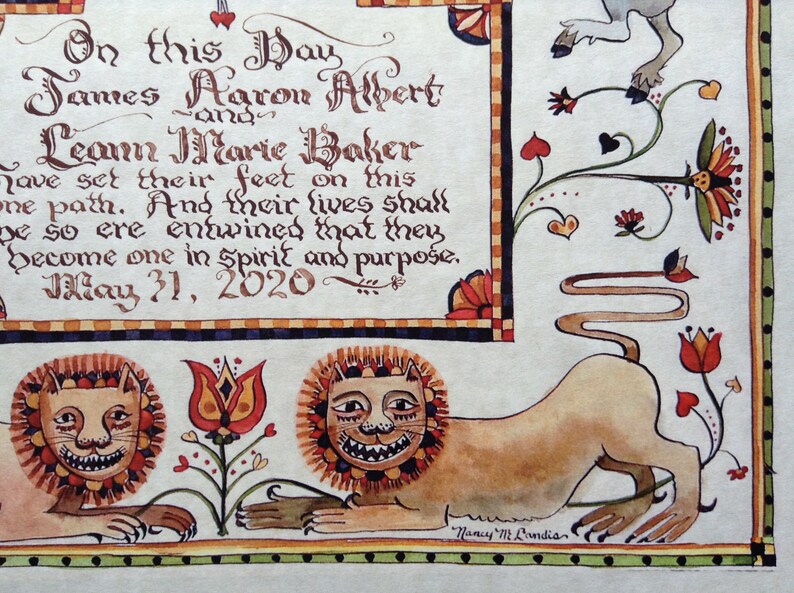 On this Day
James Aaron Albert
and
Leann Marie Baker
have set their feet on this
one path. And their lives shall
be so ere entwined that they
become one in spirit and purpose.
May 31, 2020
Nancy McLandis